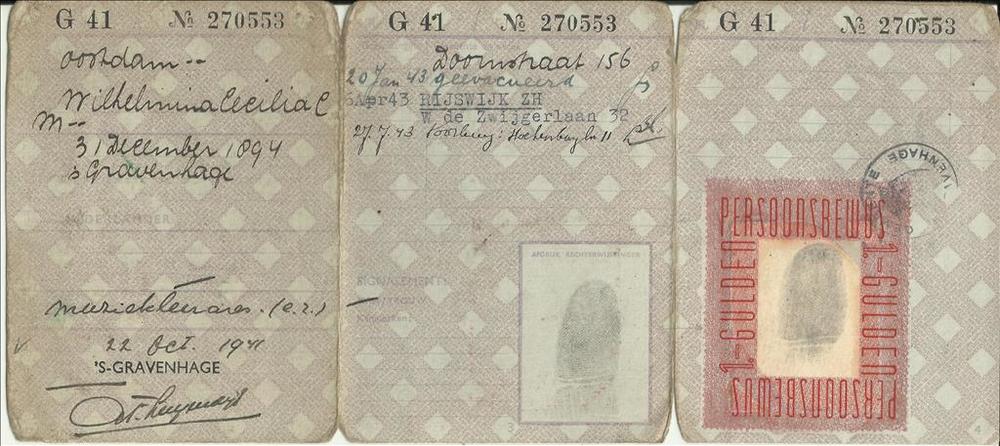 G 41 № 270553
Oostdam--
Wilhelmina Cecilia C
M--
31 December 1894
's Gravenhage
NEDERLANDER
muzieklerares. (e.z.)
22 Oct. 1941
'S-GRAVENHAGE
G 41 № 270553
Doornstraat 156
20 Jan 43 geevacueerd
Apr 43 RIJSWIJK ZH
W de Zwijgerlaan 32
27.7.43 Voorburg:
AFDRUK RECHTERWIJSVINGER
3
G 41 № 270553
VENHAGE
PERSOONSBEWIJS
1.-GULDEN
1.-GULDEN
PERSOONSBEWIJS
4